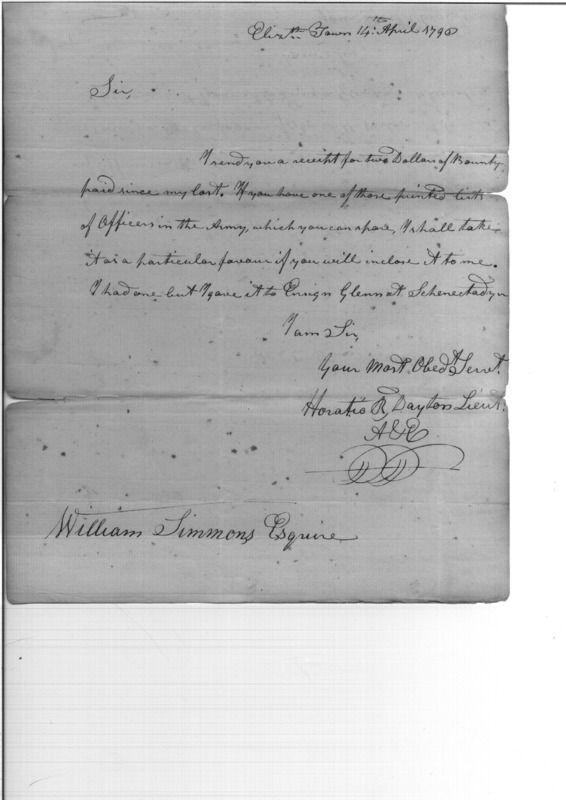 Elizth. Town 14th. April 1798
Sir,
I send you a receipt for two Dollars of Bounty,
paid since my last. If you have one of those printed lists
of Officers in the Army, which you can spare, I shall take
it as a particular favour if you will inclose it to me.
I had one but I gave it to Ensign Glenn at Schenectady
I am Sir,
Your Most Obedt. Servt.
Horatio R, Dayton Lieut.
William Simmons, Esquire